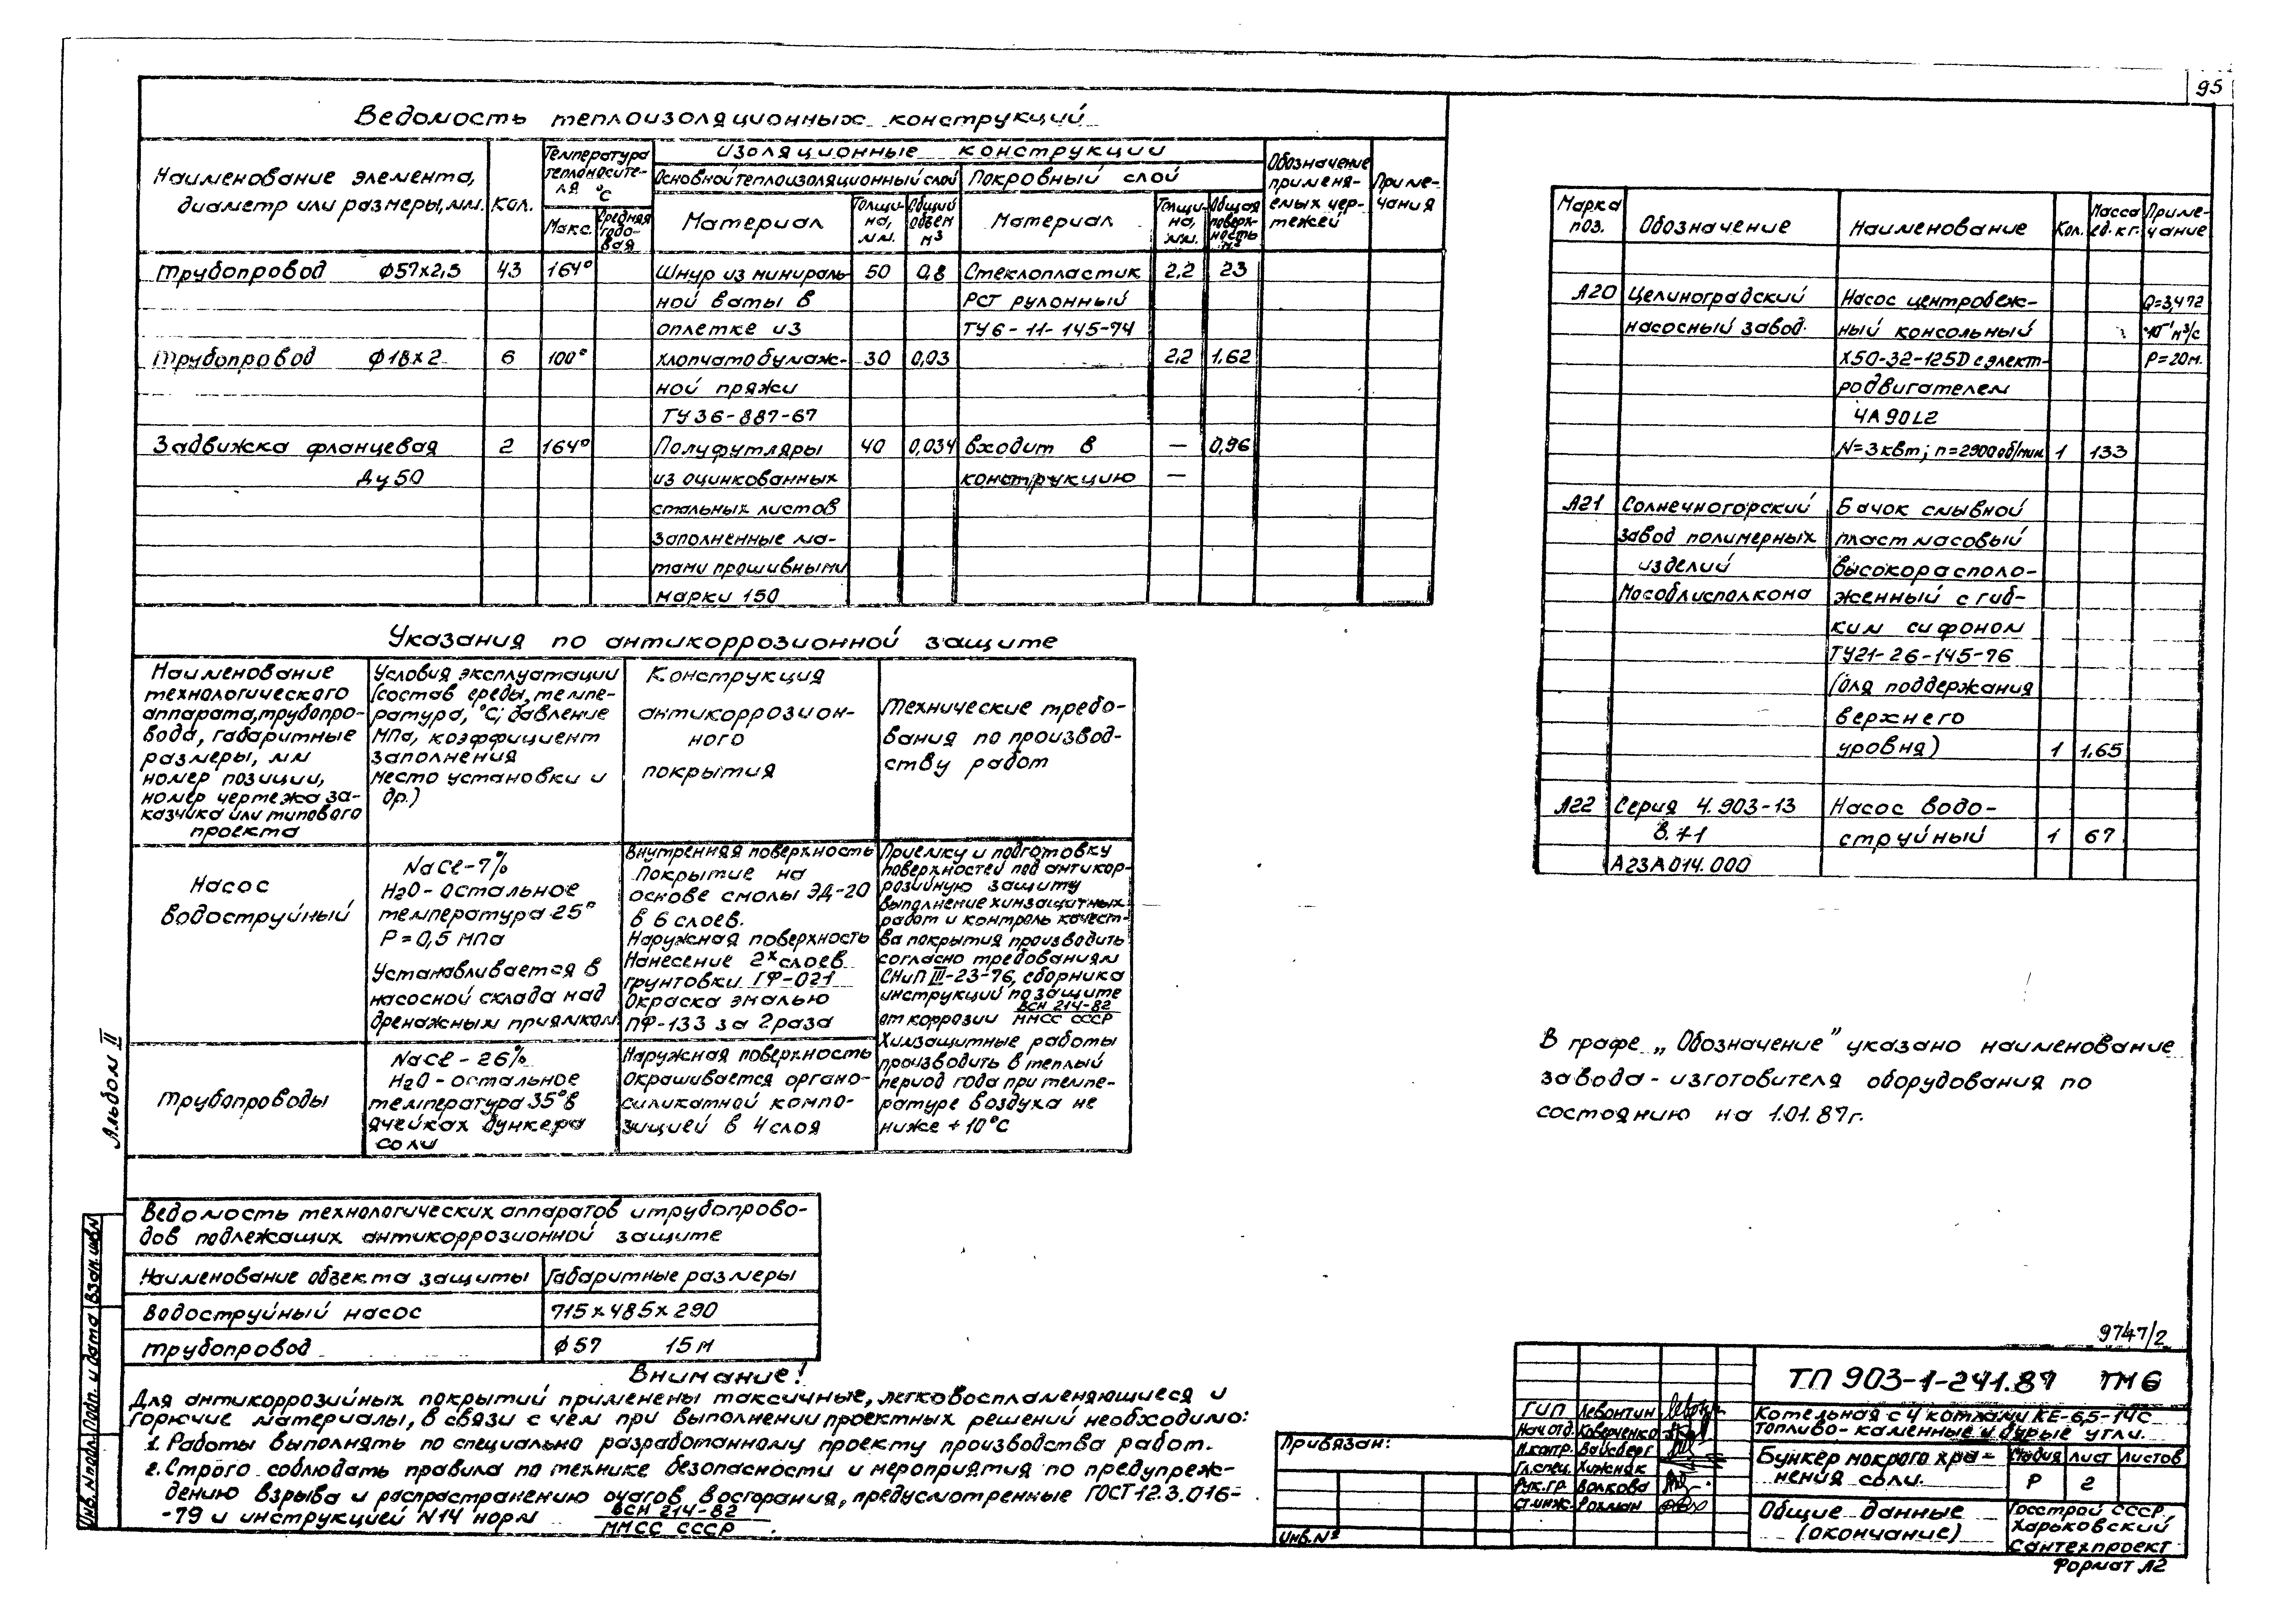 95
Ведомость теплоизоляционных конструкций
Наименование элемента,
диаметр или размеры, мм.
Кол.
Температура
теплоносите-
ля °С
Макс.
Средняя
годо-
вая
Изоляционные конструкции
Основной теплоизоляционный слой
Покровный слой
Материал
Толщи-
на,
мм.
Общий
объем
м³
Материал
Толщи-
на,
мм.
Общая
поверх-
ность
м²
Обозначение
применя-
емых чер-
тежей
Приме-
чания
Трубопровод ф57х2,5 43 164° Шнур из минираль- 50 0,8 Стеклопластик 2,2 23
ной ваты в РСТ рулонный
оплетке из ТУ6-11-145-74
Трубопровод ф18х2 6 100° хлопчатобумаж- 30 0,03 2,2 1,62
ной пряжи
ТУ36-887-67
Задвижка фланцевая 2 164° Полуфутляры 40 0,034 входит в — 0,96
Ду50 из оцинкованных конструкцию —
стальных листов
заполненные ма-
тами прошивными
марки 150
Указания по антикоррозионной защите
Наименование
технологического
аппарата, трубопро-
вода, габаритные
размеры, мм
номер позиции,
номер чертежа за-
казчика или типового
проекта
Условия эксплуатации
(состав среды, темпе-
ратура, °С; давление
МПа, коэффициент
заполнения
место установки и
др.)
Конструкция
антикоррозион-
ного
покрытия
Технические требо-
вания по производ-
ству работ
Насос
водоструйный
NaCl-7%
H2O-остальное
температура 25°
Р=0,5 МПа
Устанавливается в
насосной склада над
дренажным приямком
Внутренняя поверхность
Покрытие на
основе смолы ЭД-20
в 6 слоев.
Наружная поверхность
Нанесение 2х слоев
грунтовки ГФ-021
Окраска эмалью
ПФ-133 за 2 раза
Приемку и подготовку
поверхностей под антикор-
розийную защиту
выполнение химзащитных
работ и контроль качест-
ва покрытия производить
согласно требованиям
СНиП III-23-76, сборника
инструкций по защите
от коррозии ВСН 214-82
ММСС СССР
Химзащитные работы
производить в теплый
период года при темпе-
ратуре воздуха не
ниже +10°С
Трубопроводы
NaCl-26%
H2O-остальное
температура 35° в
ячейках бункера
соли
Наружная поверхность
Окрашивается органо-
силикатной компо-
зицией в 4 слоя
Ведомость технологических аппаратов и трубопрово-
дов подлежащих антикоррозионной защите
Наименование объекта защиты Габаритные размеры
Водоструйный насос 715х485х290
Трубопровод ф57 15м
Внимание!
Для антикоррозийных покрытий применены таксичные, легковоспламеняющиеся и
горючие материалы, в связи с чем при выполнении проектных решений необходимо:
1. Работы выполнять по специально разработанному проекту производства работ.
2. Строго соблюдать правила по технике безопасности и мероприятия по предупреж-
дению взрыва и распространению очагов возгорания, предусмотренные ГОСТ 12.3.016-
-79 и инструкцией N14 норм ВСН 214-82
ММСС СССР.
Марка
поз.
Обозначение
Наименование
Кол.
Масса
ед. кг.
Приме-
чание
А20 Целиноградский Насос центробеж- Q=3,472
насосный завод. ный консольный 10⁻¹ м³/с
Х50-32-125D с элект- Р=20м.
родвигателем
4А90L2
N=3квт; n=2900об/мин. 1 133
А21 Солнечногорский Бачок смывной
завод полимерных пластмасовый
изделий высокорасполо-
Мособлисполкона женный с гиб-
ким сифоном
ТУ21-26-145-76
(для поддержания
верхнего
уровня) 1 1,65
А22 Серия 4.903-13 Насос водо-
в. 1-1 струйный 1 67
А23А014.000
В графе „Обозначение" указано наименование
завода-изготовителя оборудования по
состоянию на 1.01.87г.
Альбом II
Инв. N подл. Подп. и дата Взам. инв. N
9747/2
ТП 903-1-241.87 ТМ6
Котельная с 4 котлами КЕ-6,5-14С
Топливо-каменные и бурые угли.
Бункер мокрого хра-
нения соли.
Стадия Лист Листов
Р 2
Общие данные
(окончание)
Госстрой СССР
Харьковский
Сантехпроект
ГИП Левонтин
Нач. отд. Коверченко
Н.контр. Вайсберг
Гл.спец. Хижняк
Рук.гр. Волкова
Ст.инж.
Привязан:
Инв. №
Формат А2